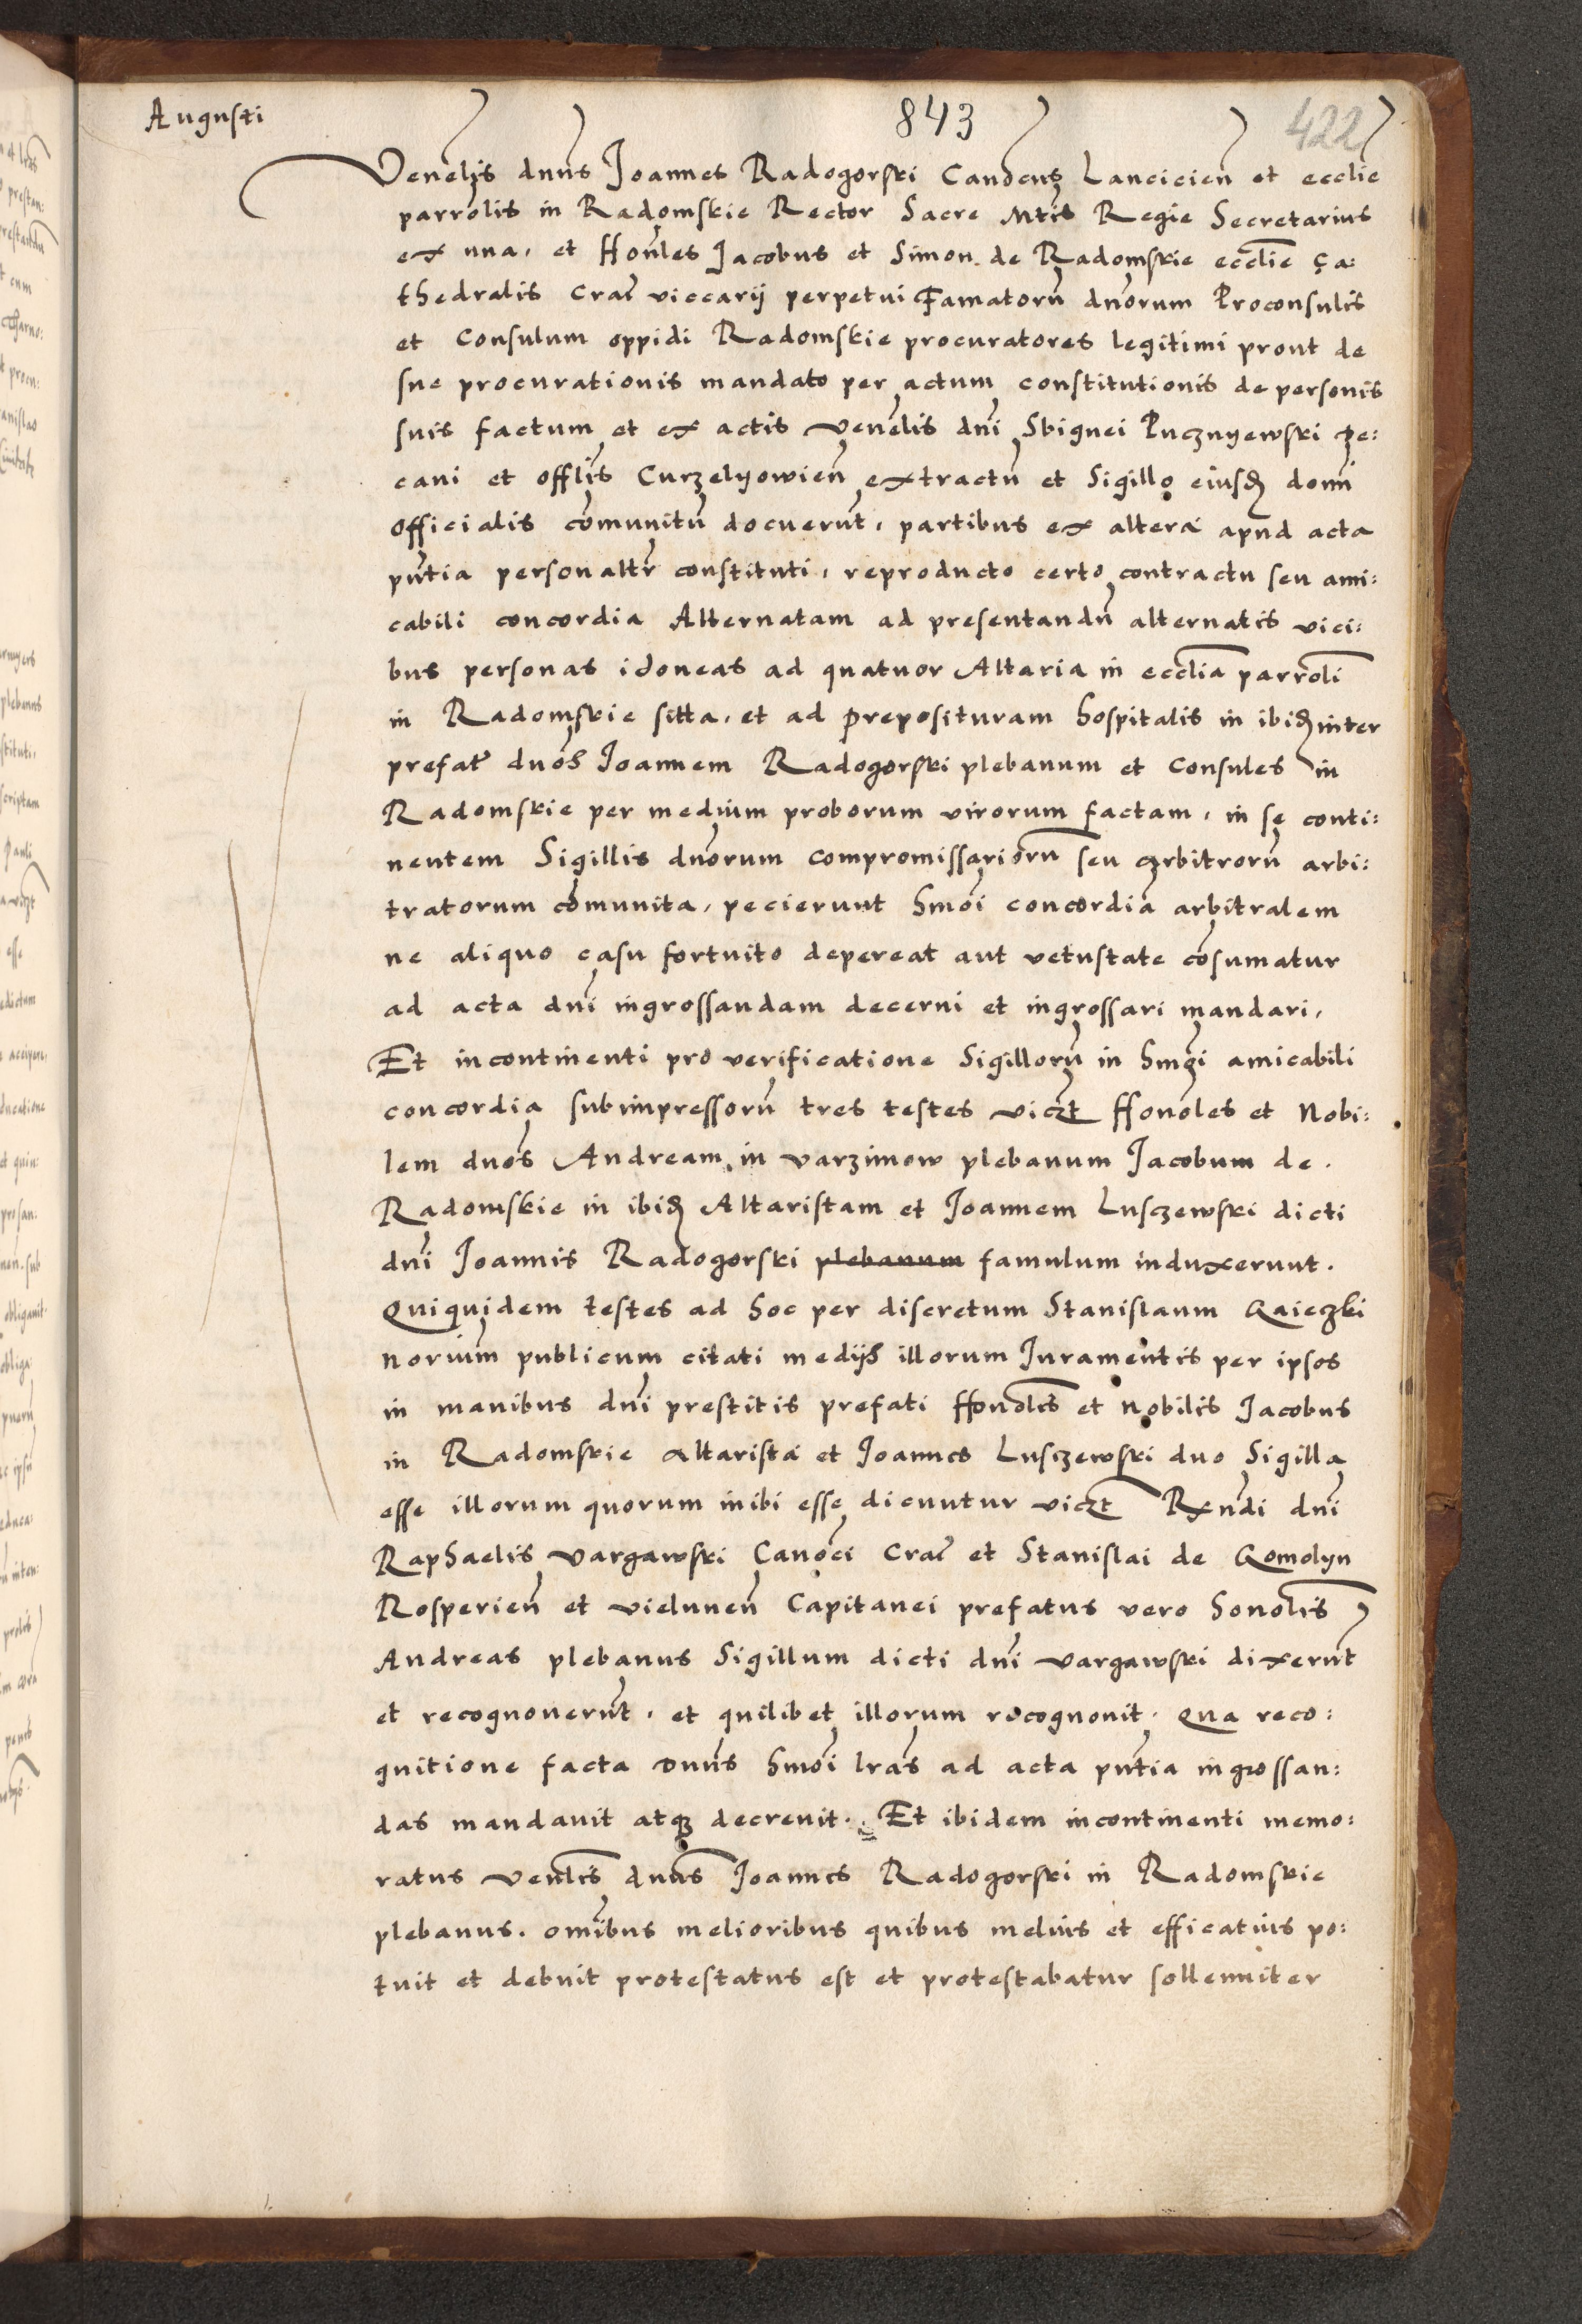 Augusti
843
422
Venelis dnus Joannes Radogorski Canocus Lancicien et ecclie
parrolis in Radomskie Rector Sacre Mtis Regie Secretarius
ex una, et Honles Jacobus et Simon de Radomskie ecclie Ca:
thedralis Crac viccarij perpetui Famatoru dnorum Proconsulis
et Consulum oppidi Radomskie procuratores legitimi prout de
sue procurationis mandato per actum constitutionis de personis
suis factum et ex actis venelis dni Sbignei Pucznyewski De:
cani et offlis Curzelyowien extractu et Sigillo eiusd domi
officialis comunitu docuerut, partibus ex altera apud acta
pntia personaltr constituti, reproducto certo contractu seu ami:
cabili concordia Alternatam ad presentandu alternatis vici:
bus personas idoneas ad quatuor Altaria in ecclia parroli
in Radomskie sitta, et ad preposituram hospitalis in ibid inter
prefat dnos Joannem Radogorski plebanum et Consules in
Radomskie per medium proborum virorum factam, in se conti:
nentem Sigillis dnorum compromissarioru seu arbitroru arbi:
tratorum comunita, pecierunt hmoi concordia arbitralem
ne aliquo casu fortuito depereat aut vetustate cosumatur
ad acta dni ingrossandam decerni et ingrossari mandari,
Et incontinenti pro verificatione Sigilloru in hmoi amicabili
concordia subimpressoru tres testes viczt Honoles et Nobi:
lem dnos Andream in varzimow plebanum Jacobum de
Radomskie in ibid Altaristam et Joannem Lusczewski dicti
dni Joannis Radogorski plebanum famulum induxerunt.
Quiquidem testes ad hoc per discretum Stanislaum Gaieczki
norium publicum citati medijs illorum Juramentis per ipsos
in manibus dni prestitis prefati Honoles et nobilis Jacobus
in Radomskie altarista et Joannes Lusczewski duo Sigilla
esse illorum quorum inibi esse dicuntur viczt Rxndi dni
Raphaelis Vargawski Canoci Crac et Stanislai de Gomolyn
Rosperien et vielunen Capitanei prefatus vero honolis
Andreas plebanus Sigillum dicti dni vargawski dixerut
et recognoverut, et quilibet illorum recognovit. Qua reco:
gnitione facta Dnus hmoi lras ad acta pntia ingrossan:
das mandavit atq decrevit. Et ibidem incontinenti memo:
ratus venlis dnus Joannes Radogorski in Radomskie
plebanus. omibus melioribus quibus melius et efficatius po:
tuit et debuit protestatus est et protestabatur sollenniter